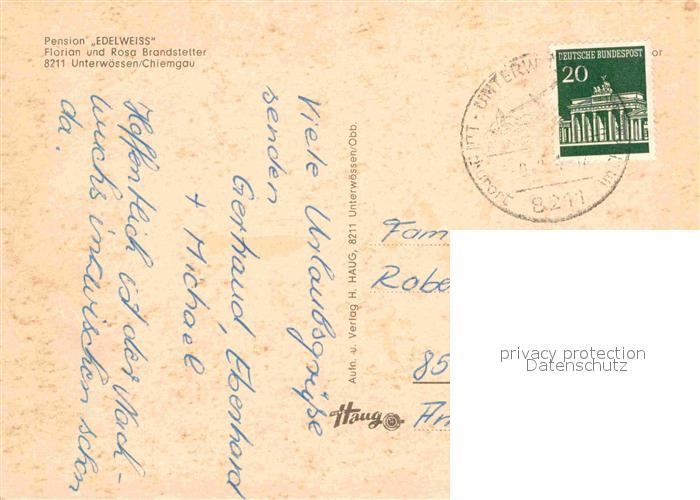 Pension „EDELWEISS"
Florian und Rosa Brandstetter
8211 Unterwössen/Chiemgau
Viele Urlaubsgrüße
senden
Gertraud, Eberhard
+ Michael
Hoffentlich ist der Nach-
wuchs inzwischen schon
da.
Aufn. u. Verlag H. HAUG, 8211 Unterwössen/Obb.
Haug
DEUTSCHE BUNDESPOST
20
UNTERW
8211
Fam
Robe
85
privacy protection
Datenschutz